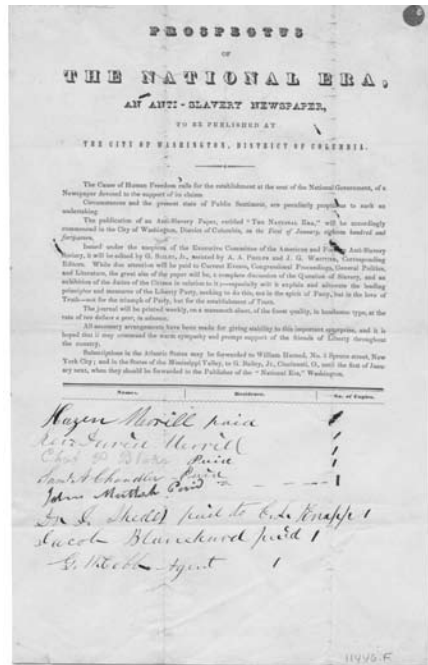 PROSPECTUS
OF
THE NATIONAL ERA,
AN ANTI-SLAVERY NEWSPAPER,
TO BE PUBLISHED AT
THE CITY OF WASHINGTON, DISTRICT OF COLUMBIA.
The Cause of Human Freedom calls for the establishment at the seat of the National Government, of a
Newspaper devoted to the support of its claims.
Circumstances and the present state of Public Sentiment, are peculiarly propitious to such an
undertaking.
The publication of an Anti-Slavery Paper, entitled "THE NATIONAL ERA," will be accordingly
commenced in the City of Washington, District of Columbia, on the First of January, eighteen hundred and
forty-seven.
Issued under the auspices of the Executive Committee of the American and Foreign Anti-Slavery
Society, it will be edited by G. BAILEY, Jr., assisted by A. A. PHELPS and J. G. WHITTIER, Corresponding
Editors. While due attention will be paid to Current Events, Congressional Proceedings, General Politics,
and Literature, the great aim of the paper will be, a complete discussion of the Question of Slavery, and an
exhibition of the duties of the Citizen in relation to it;—especially will it explain and advocate the leading
principles and measures of the Liberty Party, seeking to do this, not in the spirit of Party, but in the love of
Truth—not for the triumph of Party, but for the establishment of Truth.
The journal will be printed weekly, on a mammoth sheet, of the finest quality, in handsome type, at the
rate of two dollars a year, in advance.
All necessary arrangements have been made for giving stability to this important enterprise, and it is
hoped that it may command the warm sympathy and prompt support of the friends of Liberty throughout
the country.
Subscriptions in the Atlantic States may be forwarded to William Harned, No. 5 Spruce street, New
York City; and in the States of the Mississippi Valley, to G. Bailey, Jr., Cincinnati, O., until the first of Janu-
ary next, when they should be forwarded to the Publisher of the "National Era," Washington.
Names. Residence. No. of Copies.
Hazen Merrill paid 1
Rev David Merrill 1
Chas Paid 1
Saml A Chandler Paid 1
John Paid 1
Dr J. paid to C. L. Knapp 1
Jacob Blanchard paid 1
G. W. Cobb Agent 1
11445.F